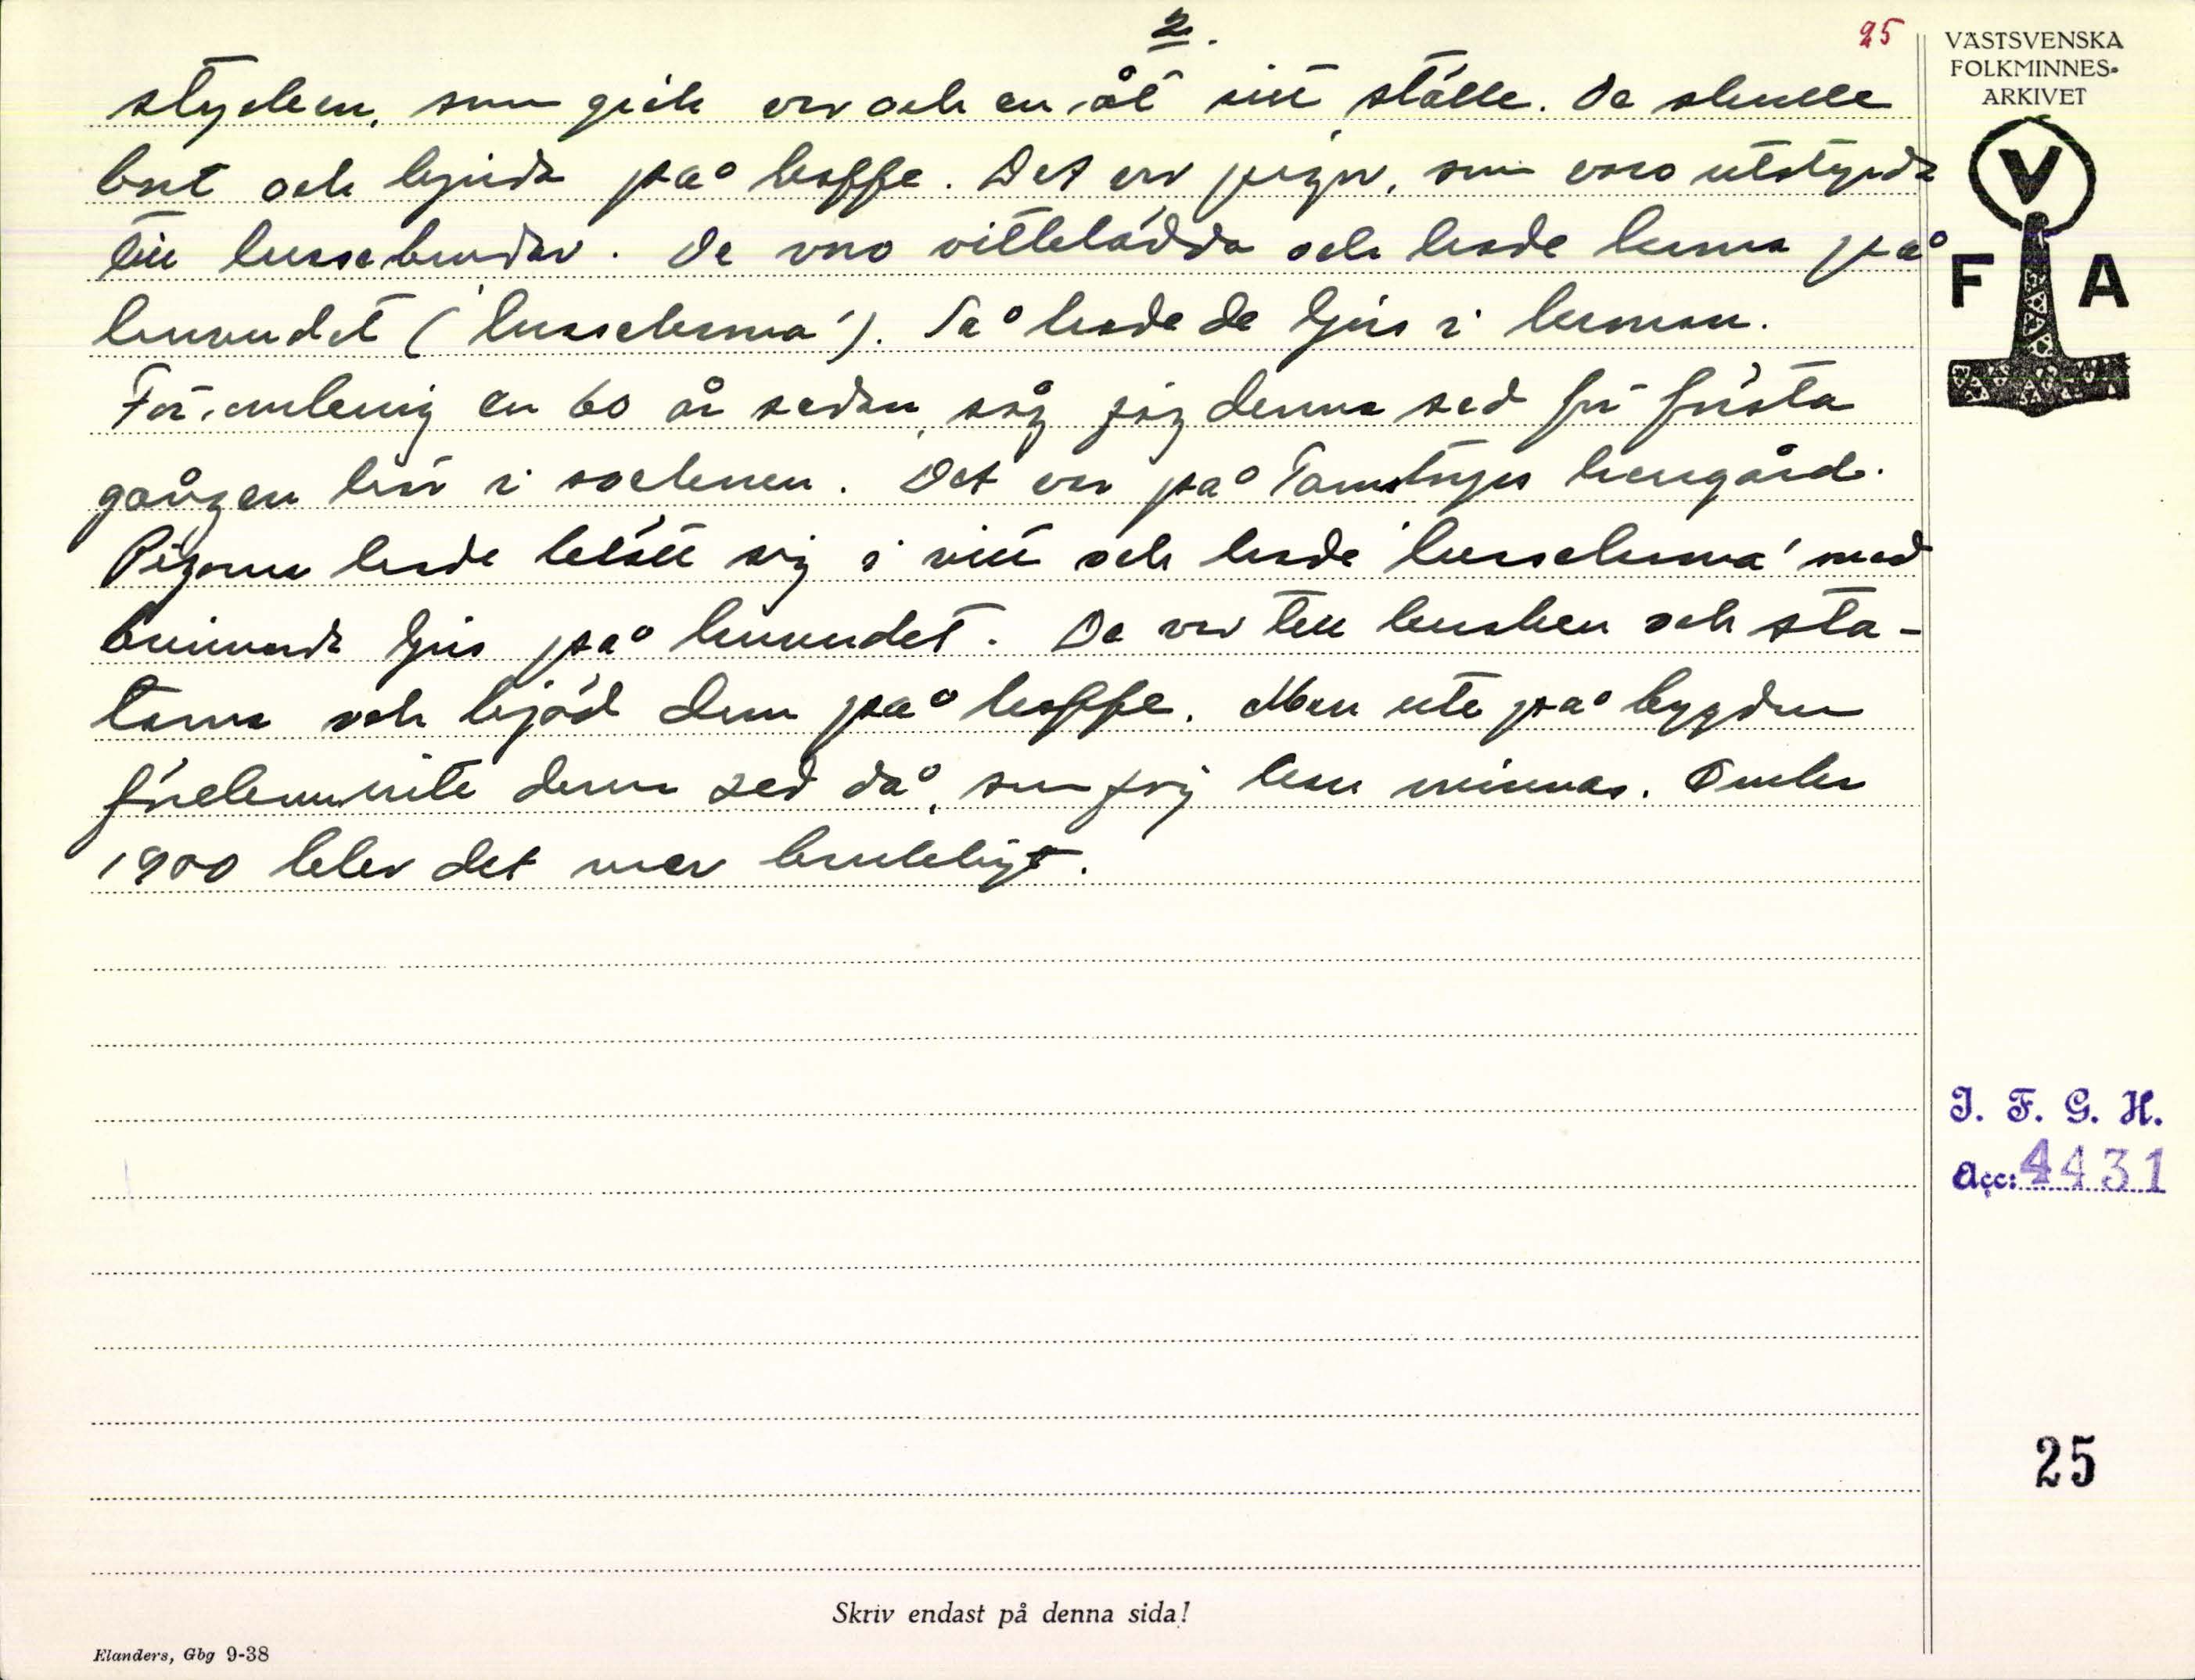 2.
25
stycken, som gick var och en åt sitt ställe. De skulle
bort och bjuda på kaffe. Det var pigor, som voro utstyrda
till lussebrudar. De voro vitklädda och hade krona på
huvudet ('lussekrona'). Så hade de ljus i kronan.
För omkring en 60 år sedan såg jag denna sed för första
gången här i socknen. Det var på Tamstorps herrgård.
Pigorna hade klätt sig i vitt och hade 'lussekrona' med
brinnande ljus på huvudet. De var till kusken och sta-
tarna och bjöd dem på kaffe. Men ute på bygden
förekom inte denna sed då, som jag kan minnas. Omkr
1900 blev det mer brukligt.
VÄSTSVENSKA
FOLKMINNES-
ARKIVET
V
F A
I. F. G. H.
Acc: 4431
25
Skriv endast på denna sida!
Elanders, Gbg 9-38